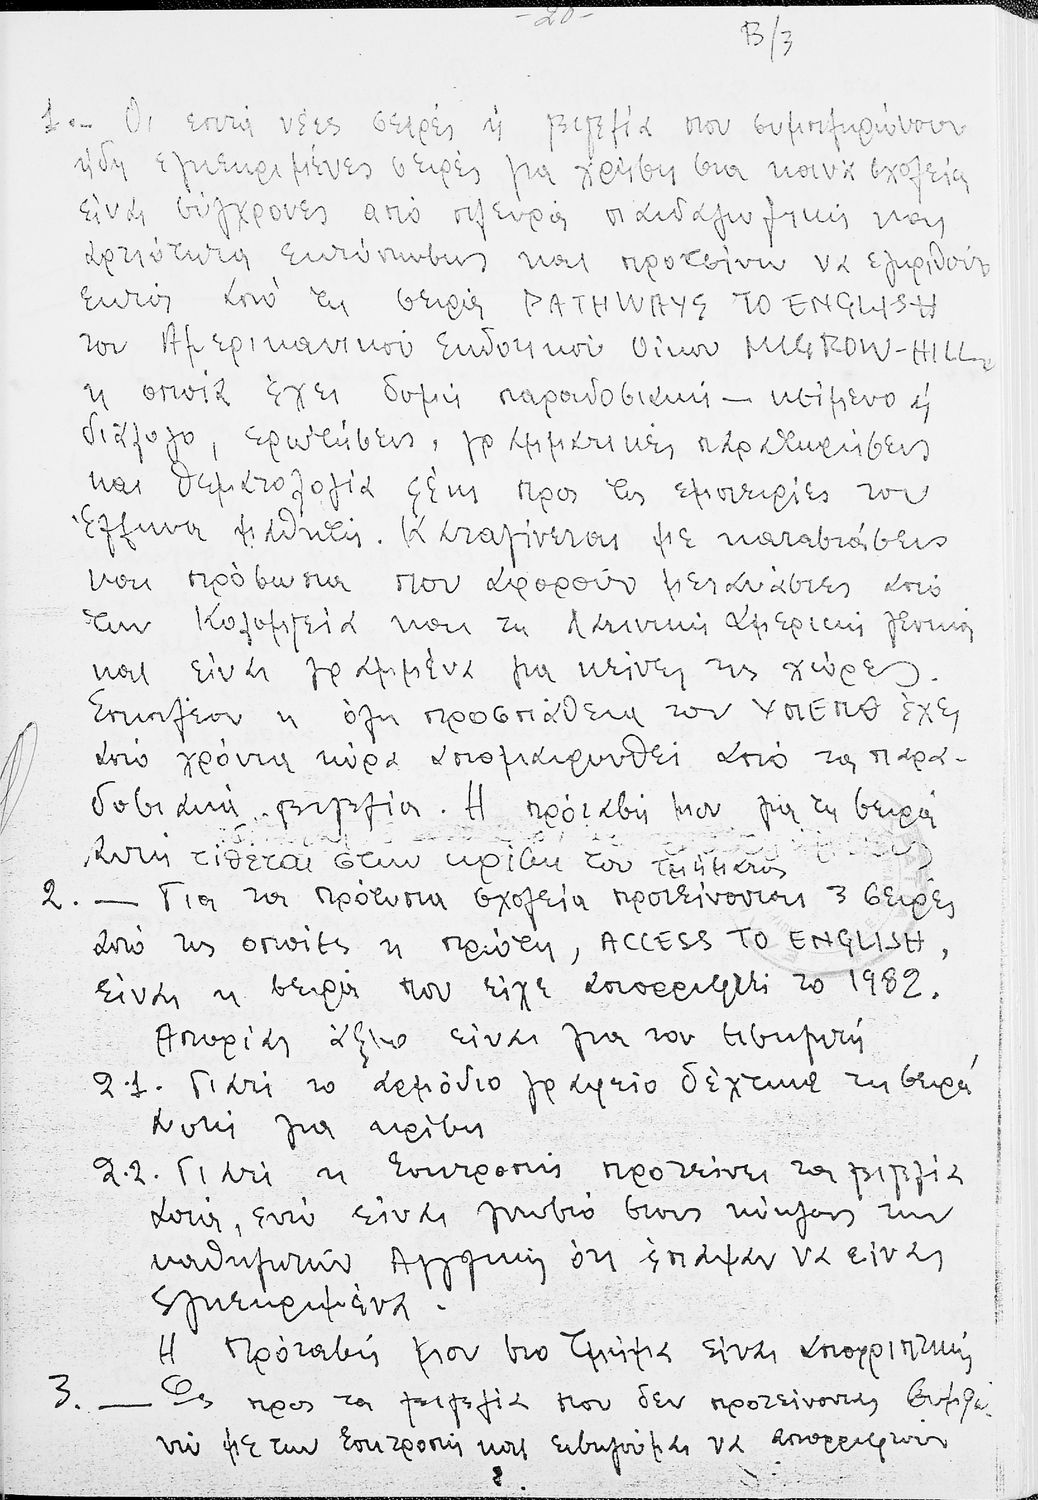 -20-
B/3
1.- Οι επτά νέες σειρές ή βιβλία που συμπληρώνουν
ήδη εγκεκριμένες σειρές για χρήση στα κοινά σχολεία
είναι σύγχρονες από πλευρά παιδαγωγική και
αρτιότητα εκτύπωσης και προτείνω να εγκριθούν
εκτός από τη σειρά PATHWAYS TO ENGLISH
του Αμερικανικού Εκδοτικού Οίκου McGROW-HILL,
η οποία έχει δομή παραδοσιακή — κείμενο ή
διάλογο, ερωτήσεις, γραμματικές παρατηρήσεις
και θεματολογία ξένη προς τις εμπειρίες του
Έλληνα μαθητή. Καταγίνεται με καταστάσεις
και πρόσωπα που αφορούν μετανάστες από
την Κολομβία και τη Λατινική Αμερική γενικά
και είναι γραμμένα για κείνες τις χώρες.
Επιπλέον η όλη προσπάθεια του ΥΠΕΠΘ έχει
από χρόνια τώρα απομακρυνθεί από τα παρα-
δοσιακά βιβλία. Η πρόταση μου για τη σειρά
αυτή τίθεται στην κρίση του τμήματος
2. — Για τα πρότυπα σχολεία προτείνονται 3 σειρές
από τις οποίες η πρώτη, ACCESS TO ENGLISH,
είναι η σειρά που είχε απορριφθεί το 1982.
Απορίας άξιο είναι για τον εισηγητή
2.1. Γιατί το αρμόδιο γραφείο δέχτηκε τη σειρά
αυτή για κρίση
2.2. Γιατί η Επιτροπή προτείνει τα βιβλία
αυτά, ενώ είναι γνωστό στους κύκλους των
καθηγητών Αγγλικής ότι έπαψαν να είναι
εγκεκριμένα.
Η πρόταση μου στο Τμήμα είναι απορριπτική
3. — Ως προς τα βιβλία που δεν προτείνονται συμφω-
νώ με την Επιτροπή και εισηγούμαι να απορριφτούν